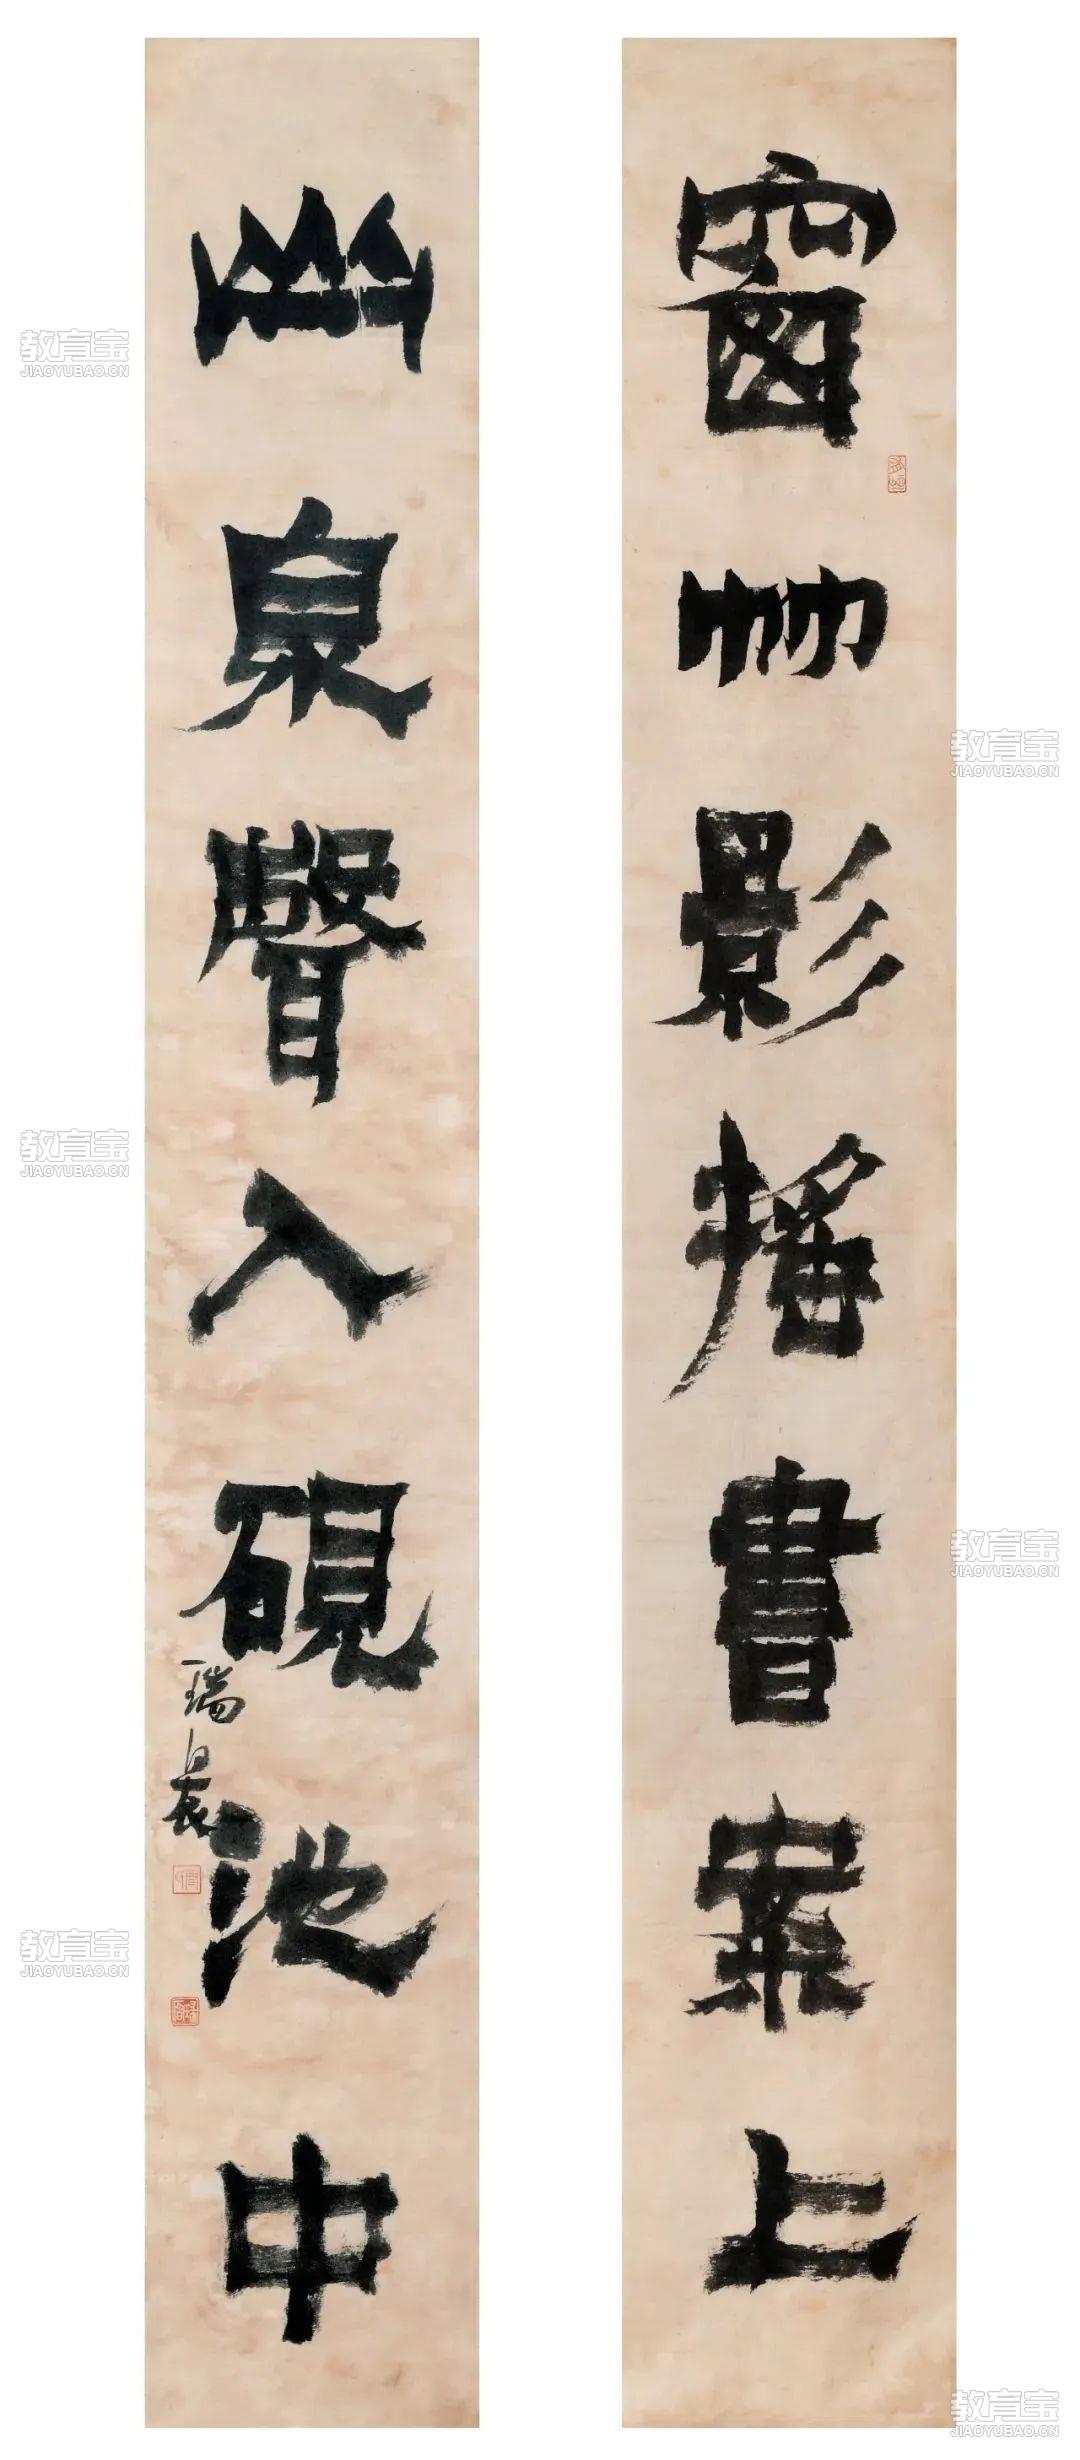 窗竹影搖書案上
山泉聲入硯池中
瑞晨
教育宝
JIAOYUBAO.CN
教育宝
JIAOYUBAO.CN
教育宝
JIAOYUBAO.CN
教育宝
JIAOYUBAO.CN
教育宝
JIAOYUBAO.CN
教育宝
JIAOYUBAO.CN